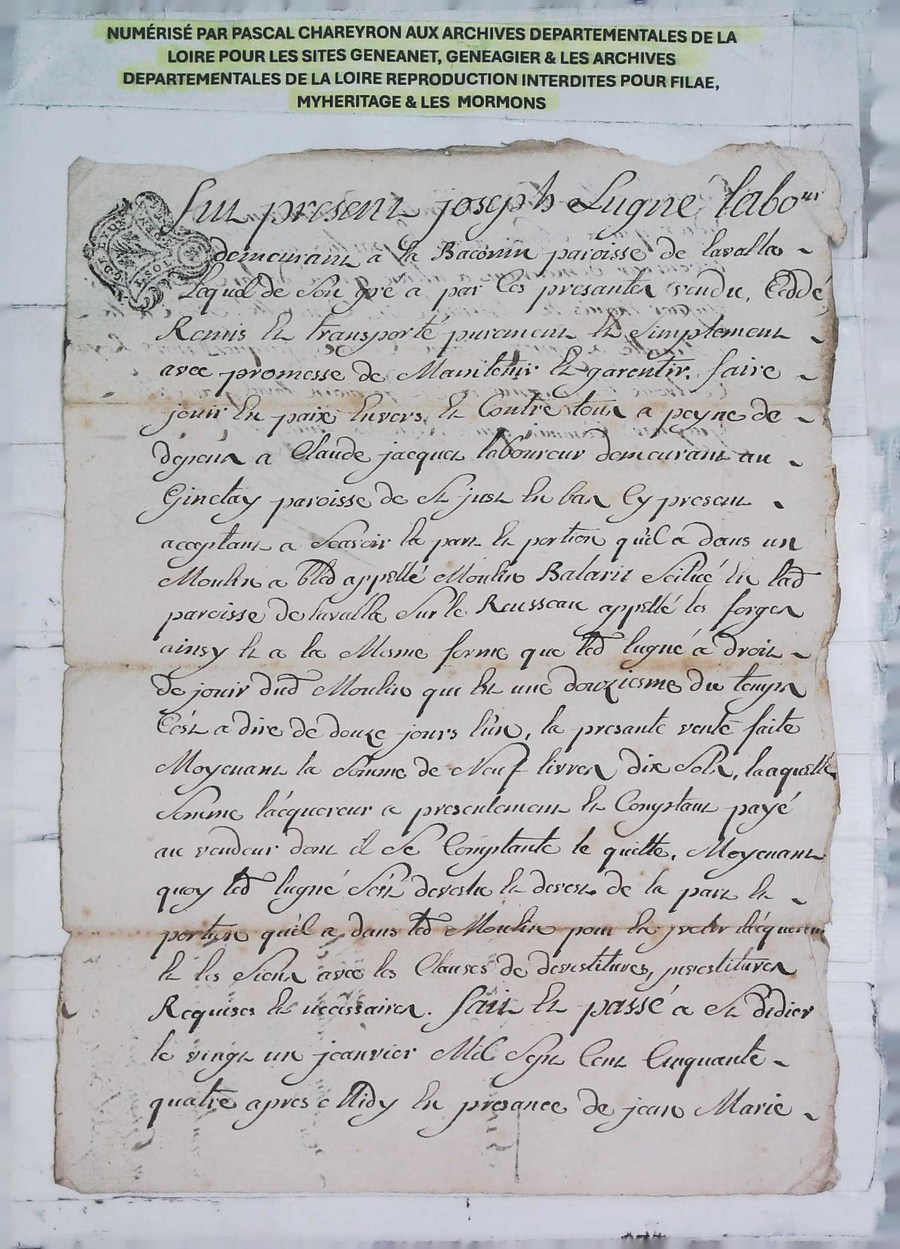 NUMÉRISÉ PAR PASCAL CHAREYRON AUX ARCHIVES DEPARTEMENTALES DE LA
LOIRE POUR LES SITES GENEANET, GENEAGIER & LES ARCHIVES
DEPARTEMENTALES DE LA LOIRE REPRODUCTION INTERDITES POUR FILAE,
MYHERITAGE & LES MORMONS
fut present joseph Lugné labour
demeurant a la Baconin paroisse de lavalla
Lequel de Son gré a par Ces presantes vendu, Ceddé,
Remis Et transporté purement Et Simplement
avec promesse de Maintenir Et garentir, faire
jouir En paix Envers Et Contre tous a peyne de
depens a Claude jacquet laboureur demeurant au
Ginctay paroisse de St just En bas Cy present
acceptant a Scavoir la part Et portion qu'il a dans un
Moulin a bled appellé Moulin Balarit Scitué En lad
paroisse de lavalla Sur le Rousseau appellé les forges
ainsy Et a la Mesme forme que led lugné a droit
De jouir dud Moulin qui Est une douziesme du temps
C'est a dire de douze jours l'un, la presante vente faite
Moyenant la Somme de Neuf livres dix Sols, laquelle
Somme l'acquereur a presentement Et Comptant payé
au vendeur dont il Se Comptante le quitte, Moyenant
quoy led lugné S'est devestu Et devest de la part Et
portion qu'il a dans led Moulin pour En jvetir l'acquereur
Et les Siens avec les Clauses de devestitures, jnvestitures
Requises Et necessaires. fait Et passé a St Didier
le vingt un jeanvier Mil Sept Cent Cinquante
quatre apres Midy En presance de jean Marie